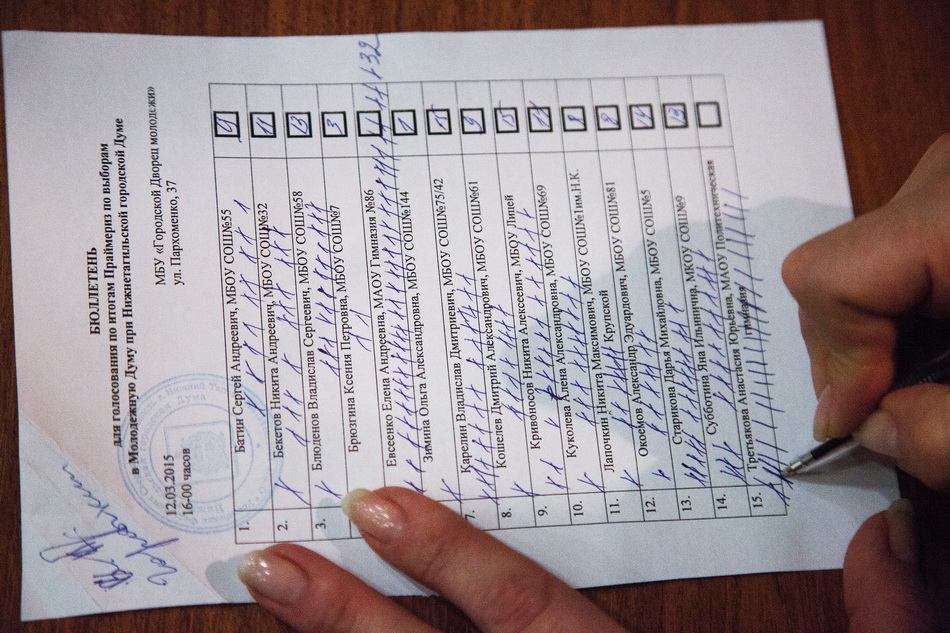 БЮЛЛЕТЕНЬ
для голосования по итогам Праймериз по выборам
в Молодежную Думу при Нижнетагильской городской Думе
12.03.2015
16-00 часов
МБУ «Городской Дворец молодежи»
ул. Пархоменко, 37
1. Батин Сергей Андреевич, МБОУ СОШ№55
2. Бекетов Никита Андреевич, МБОУ СОШ№32 11
3. Блюденов Владислав Сергеевич, МБОУ СОШ№58 13
Брюзгина Ксения Петровна, МБОУ СОШ№7 3
Евсеенко Елена Андреевна, МАОУ Гимназия №86 32
Зимина Ольга Александровна, МБОУ СОШ№144
7. Карелин Владислав Дмитриевич, МБОУ СОШ№75/42
8. Кошелев Дмитрий Александрович, МБОУ СОШ№61 9
9. Кривоносов Никита Алексеевич, МБОУ Лицей 15
10. Куколева Алена Александровна, МБОУ СОШ№69
11. Лапочкин Никита Максимович, МБОУ СОШ№1им.Н.К. Крупской 8
12. Окоемов Александр Эдуардович, МБОУ СОШ№81
13. Старикова Дарья Михайловна, МБОУ СОШ№5
14. Субботина Яна Ильинична, МКОУ СОШ№9
15. Третьякова Анастасия Юрьевна, МАОУ Политехническая гимназия